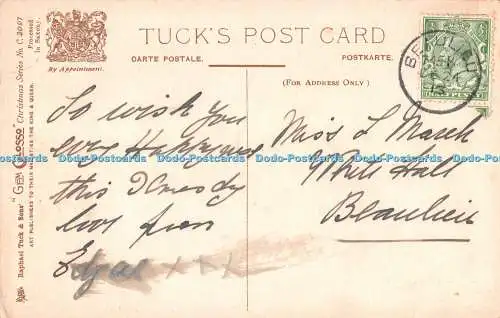 TUCK'S POST CARD
CARTE POSTALE.
POSTKARTE.
(FOR ADDRESS ONLY)
By Appointment.
Raphael Tuck & Sons' "GEM GLOSSO" Christmas Series No. C. 2007
ART PUBLISHERS TO THEIR MAJESTIES THE KING & QUEEN.
Processed in Saxony.
To wish you
every Happiness
this
love from
Edgar xxx
Miss L March
White Hall
Beaulieu
Dodo-Postcards Dodo-Postcards Dodo-Postcards Dodo-Postcards Dodo-Postcards